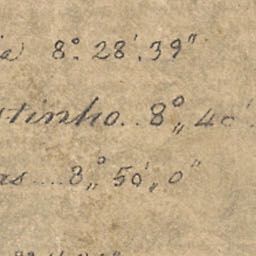 8° 28′ 39″
stinho.. 8°,, 40′
as .... 8°,, 50′,, 0″